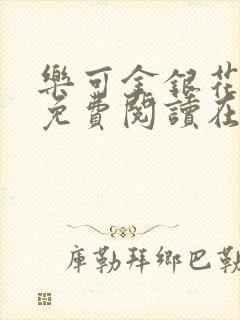 樂可金銀花
免費閱讀在
庫勒拜鄉巴勒